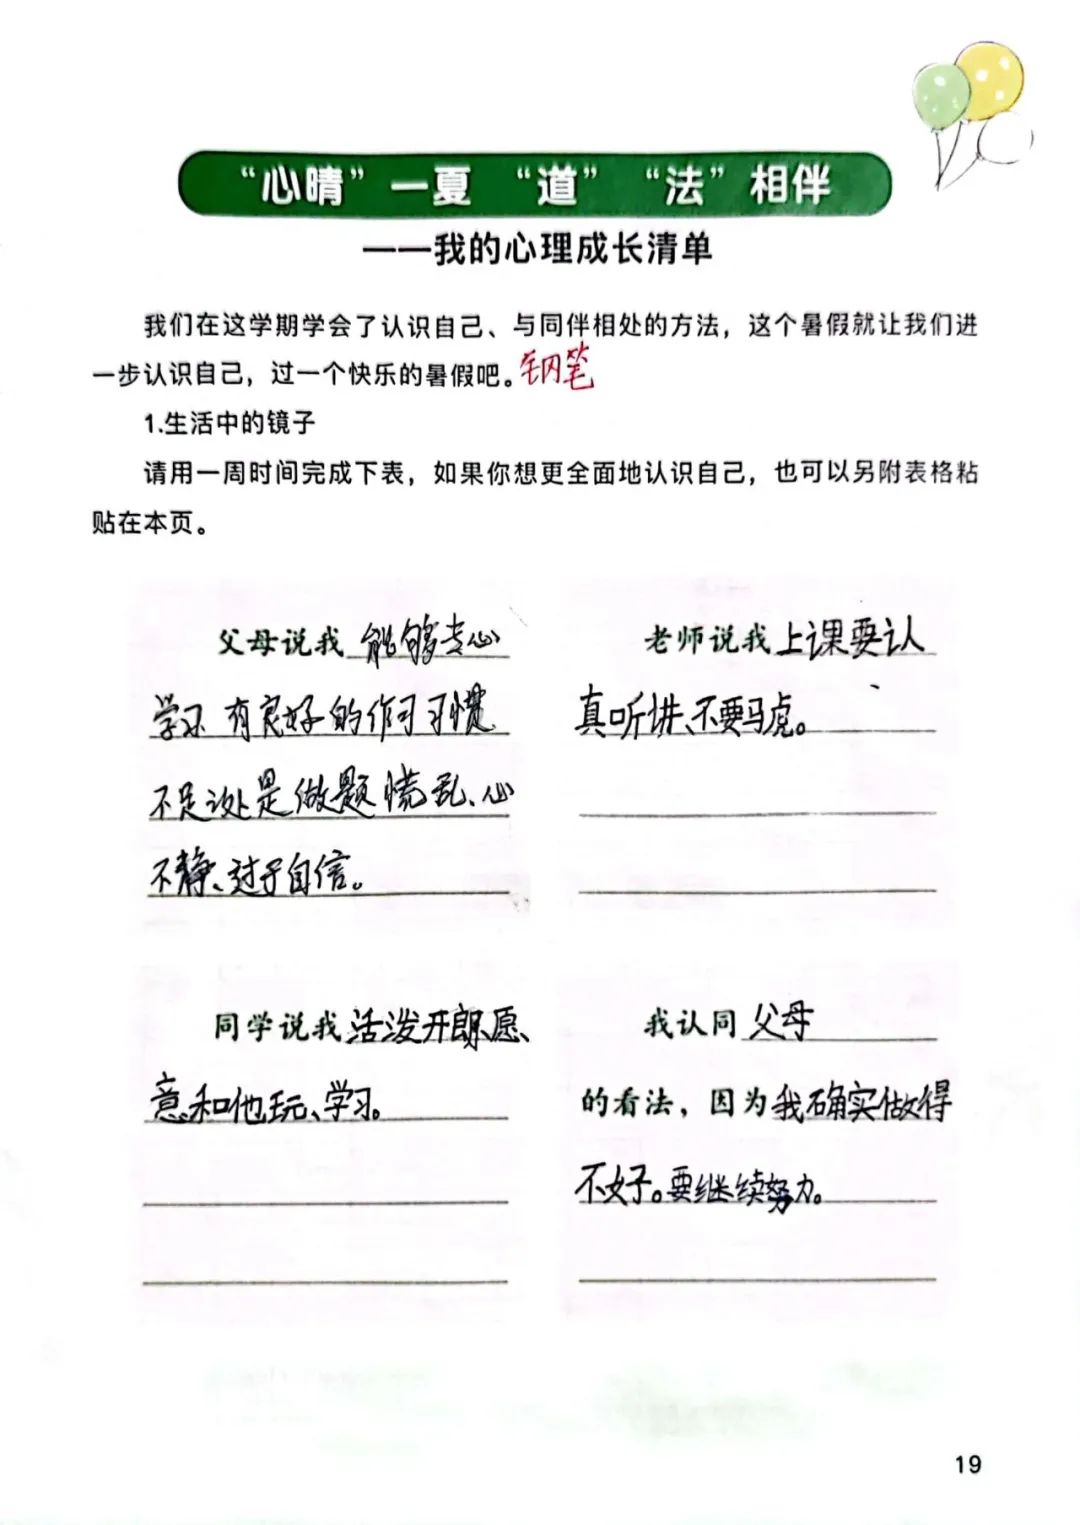 “心晴”一夏 “道” “法”相伴
——我的心理成长清单
我们在这学期学会了认识自己、与同伴相处的方法，这个暑假就让我们进
一步认识自己，过一个快乐的暑假吧。钢笔
1.生活中的镜子
请用一周时间完成下表，如果你想更全面地认识自己，也可以另附表格粘
贴在本页。
父母说我 能够专心
学习 有良好的作习习惯
不足之处是做题慌乱、心
不静、过于自信。
老师说我 上课要认
真听讲、不要马虎。
同学说我 活泼开朗、愿
意和他玩、学习。
我认同 父母
的看法，因为 我确实做得
不好。要继续努力。
19